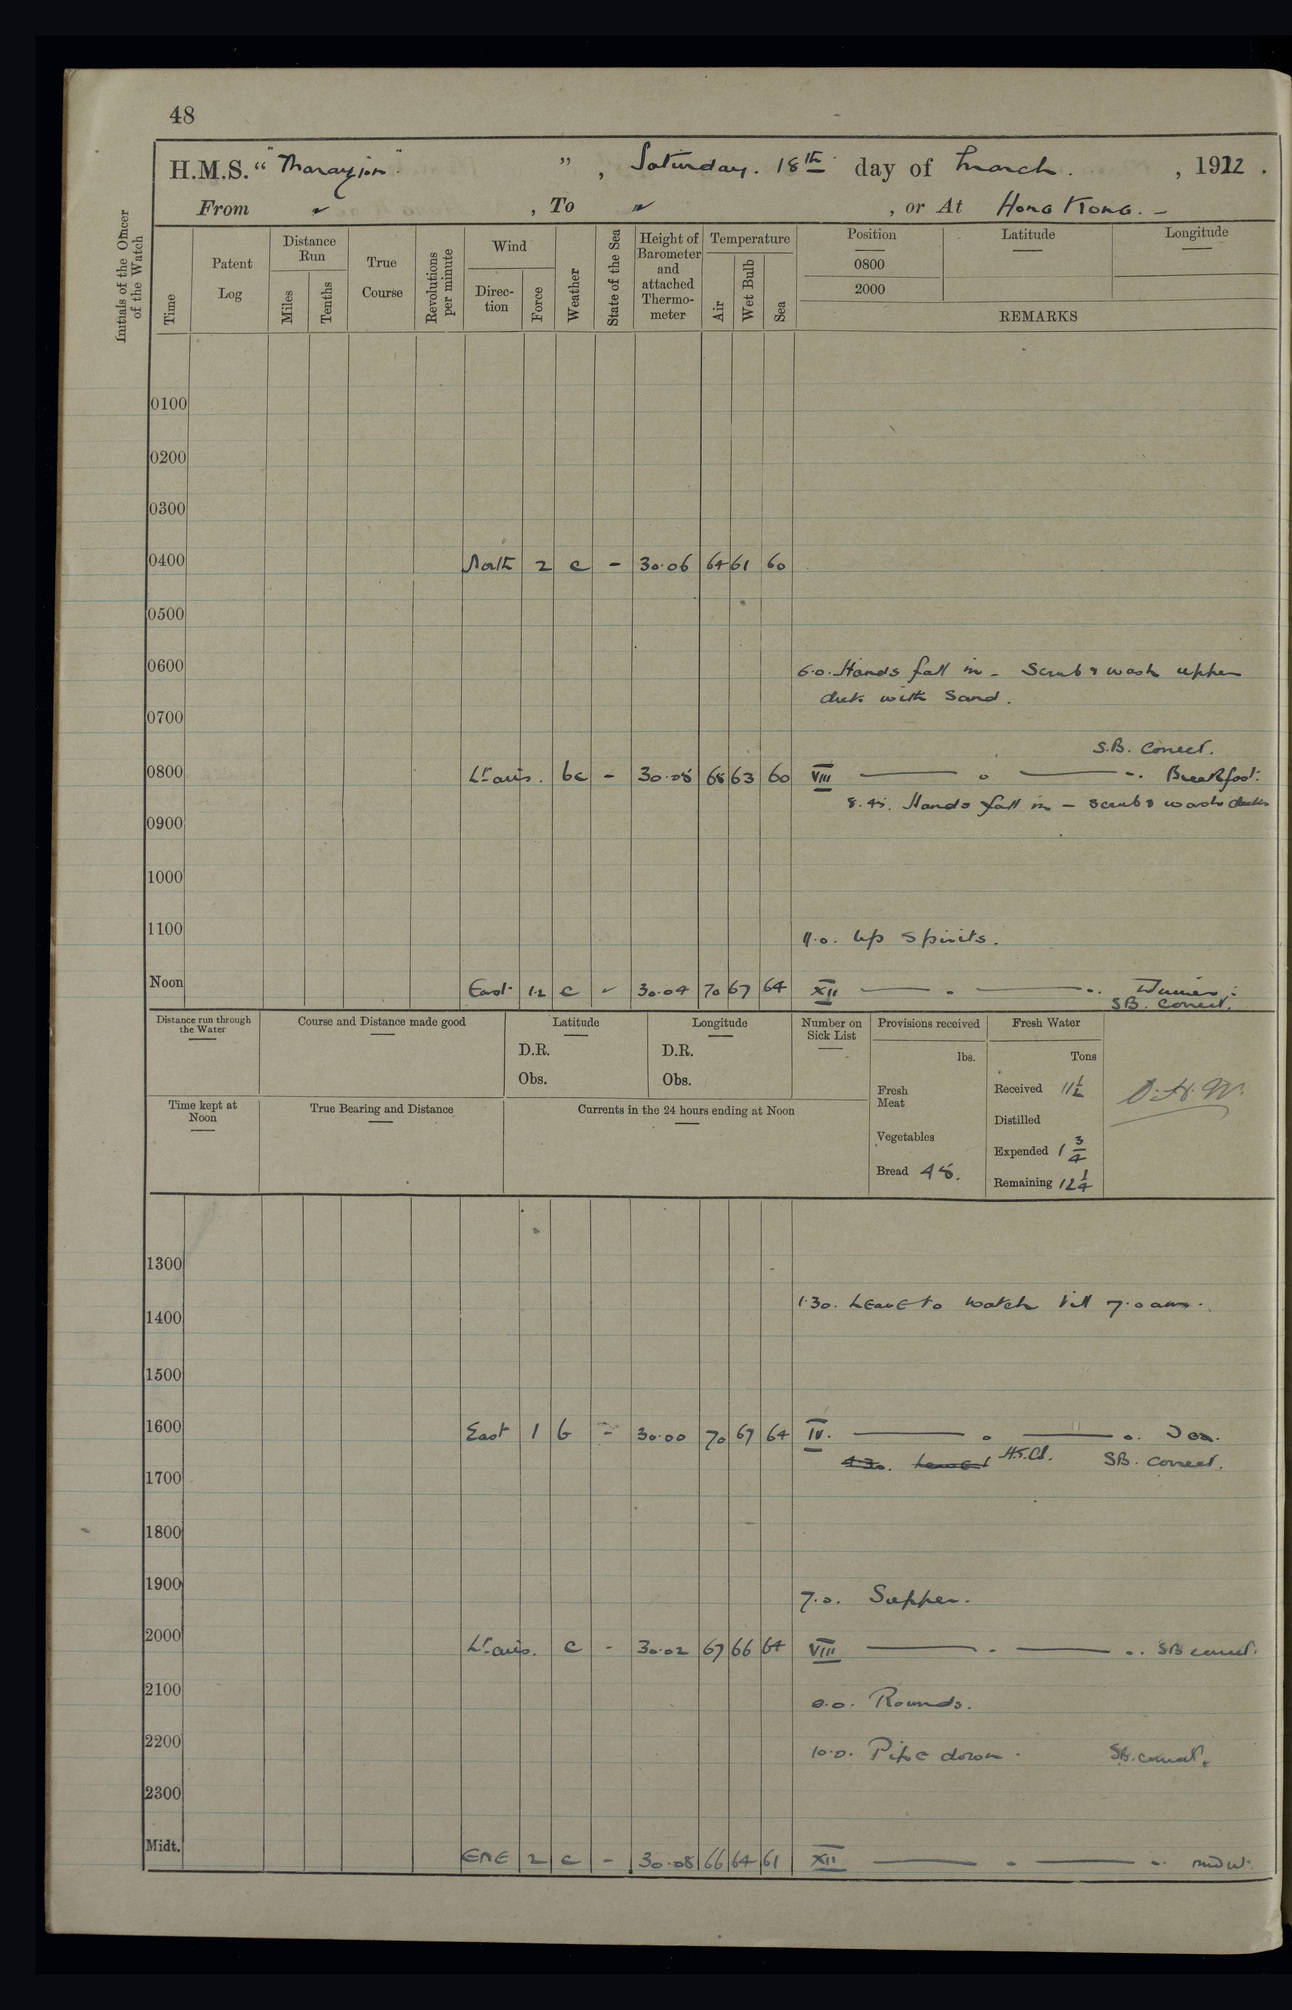 48
H.M.S. "Tharayion" ", Saturday. 18th day of March. , 1922 .
From ✓ , To ✓ , or At Hong Kong. –
Initials of the Officer of the Watch
Time
Patent Log
Distance Run
Miles
Tenths
True Course
Revolutions per minute
Wind
Direc-tion
Force
Weather
State of the Sea
Height of Barometer and attached Thermo-meter
Temperature
Air
Wet Bulb
Sea
Position
0800
2000
Latitude
Longitude
REMARKS
0100
0200
0300
0400 North 2 c – 30.06 64 61 60
0500
0600 6.0. Hands fall in – Scrub & wash upper
deck with Sand.
0700
S.B. Correct.
0800 Lt airs. bc – 30.08 68 63 60 VIII — . — .. Breakfast.
8.45. Hands fall in – scrub & wash decks
0900
1000
1100 11.0. Up Spirits.
Noon East 1.2 c ✓ 30.04 70 67 64 XII — . — .. Dinner.
SB. Correct.
Distance run through the Water
Course and Distance made good
Latitude
D.R.
Obs.
Longitude
D.R.
Obs.
Number on Sick List
Provisions received
lbs.
Fresh Meat
Vegetables
Bread 48.
Fresh Water
Tons
Received 11 1/2
Distilled
Expended 1 3/4
Remaining 12 1/4
Time kept at Noon
True Bearing and Distance
Currents in the 24 hours ending at Noon
1300
1.30. Leave to watch till 7.0 am.
1400
1500
1600 East 1 b – 30.00 70 67 64 IV. — . — .. Tea.
4.30. SB. Correct.
1700
1800
1900 7.0. Supper.
2000 Lt airs. c – 30.02 67 66 64 VIII — . — .. SB correct.
2100 Rounds.
2200 10.0. Pipe down. SB. correct.
2300
Midt. ENE 2 c – 30.08 66 64 61 XII — . — ..